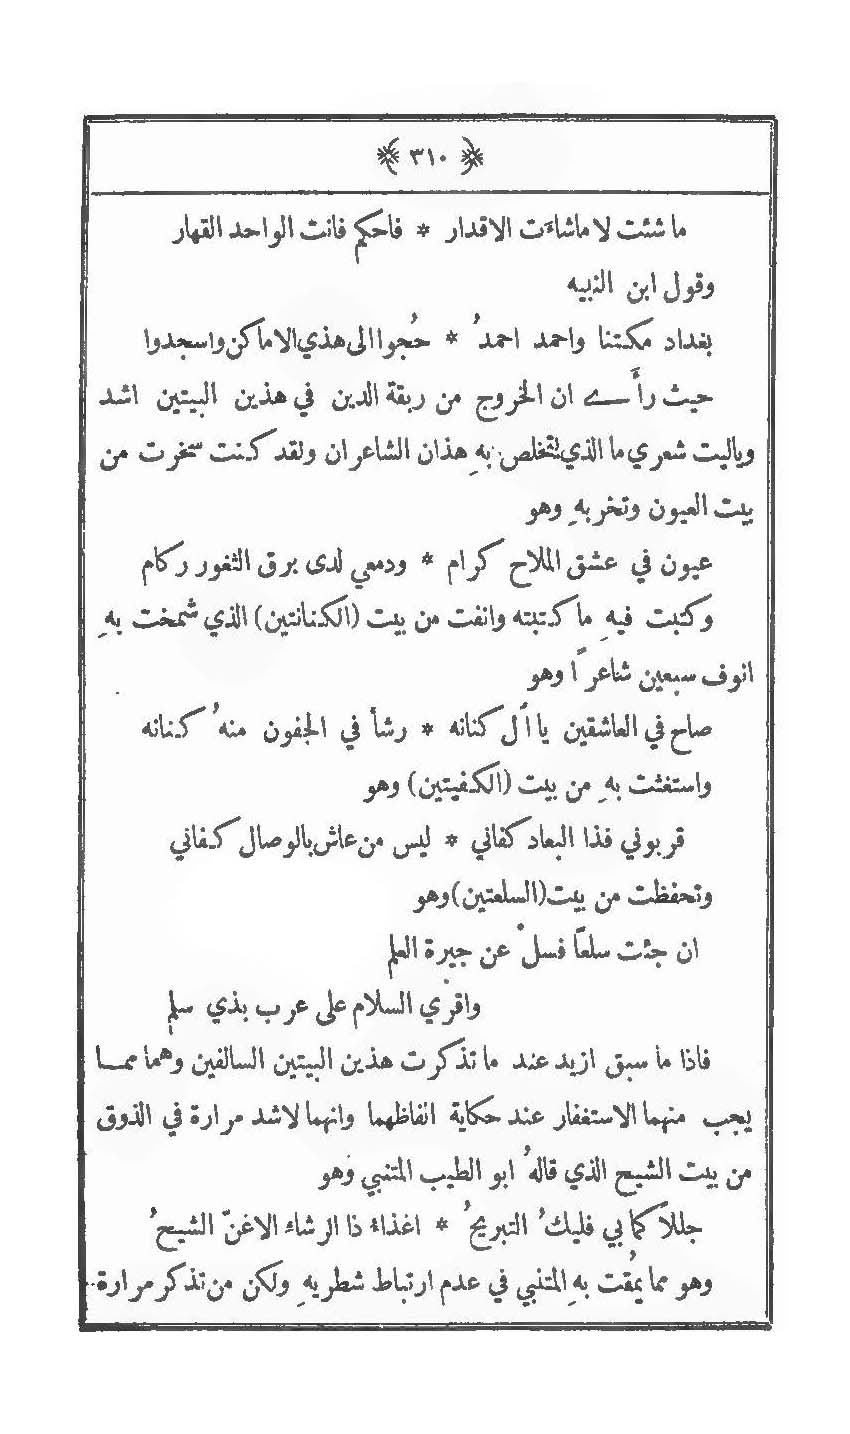 ﴿ ٣١٠ ﴾
ما شئت لا ماشاءَت الاقدار * فاحكم فانت الواحد القهار
وقول ابن النبيه
بغداد مكتنا واحمد احمدُ * حُجوا الى هذي الاماكن واسجدوا
حيث رأَے ان الخروج من ربقة الدين في هذين البيتين اشد
وياليت شعري ما الذي يتخلص بهِ هذان الشاعران ولقد كنت سخرت من
بيت العيون وتخربهِ وهو
عيون في عشق الملاح كرام * ودمعي لدى برق الثغور ركام
وكتبت فيهِ ما كتبته وانفت من بيت (الكنانتين) الذي شمخت بهِ
انوف سبعين شاعرًا وهو
صاح في العاشقين يا اَل كنانه * رشأ في الجفون منهُ كنانه
واستغثت بهِ من بيت (الكفيتين) وهو
قربوني فذا البعاد كفاني * ليس من عاش بالوصال كفاني
وتحفظت من بيت (السلعتين) وهو
ان جئت سلعًا فسلْ عن جيرة العلم
واقرِي السلام على عرب بذي سلم
فاذا ما سبق ازيد عند ما تذكرت هذين البيتين السالفين وهما مما
يجب منهما الاستغفار عند حكاية الفاظهما وانهما لاشد مرارة في الذوق
من بيت الشيح الذي قالهُ ابو الطيب المتنبي وهو
جللاً كما بي فليكُ التبريحُ * اغذاءُ ذا الرشاءِ الاغنّ الشيحُ
وهو مما يُمقت بهِ المتنبي في عدم ارتباط شطريهِ ولكن من تذكر مرارة